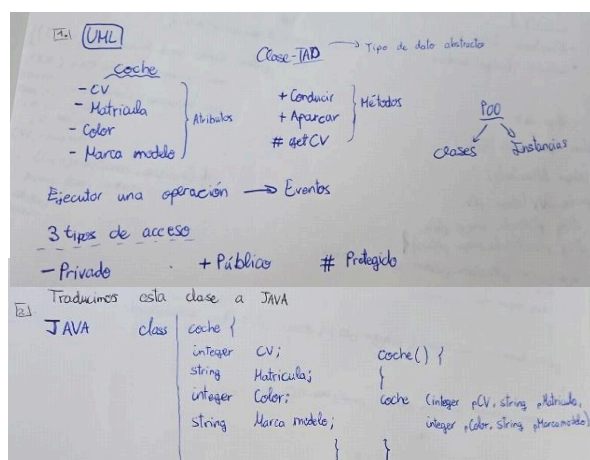 1. UML
Clase-TAD → Tipo de dato abstracto
coche
- CV
- Matricula
- Color
- Marca modelo
Atributos
+ Conducir
+ Aparcar
# getCV
Métodos
POO
clases Instancias
Ejecutor una operación → Eventos
3 tipos de acceso
- Privado + Público # Protegido
2. Traducimos esta clase a JAVA
JAVA class coche {
integer CV;
string Matricula;
integer Color;
string Marca modelo;
}
coche() {
}
coche (integer pCV, string pMatricula,
integer pColor, string pMarcamodelo)
}